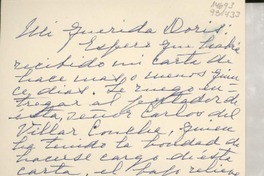 Mi querida Doris:
Espero que habrá
recibido mi carta de
hace mas o menos quin
ce dias. Te ruego en-
tregar al portador de
ésta, señor Carlos del
Villar Concha, quien
ha tenido la bondad de
hacerse cargo de esta
carta, el